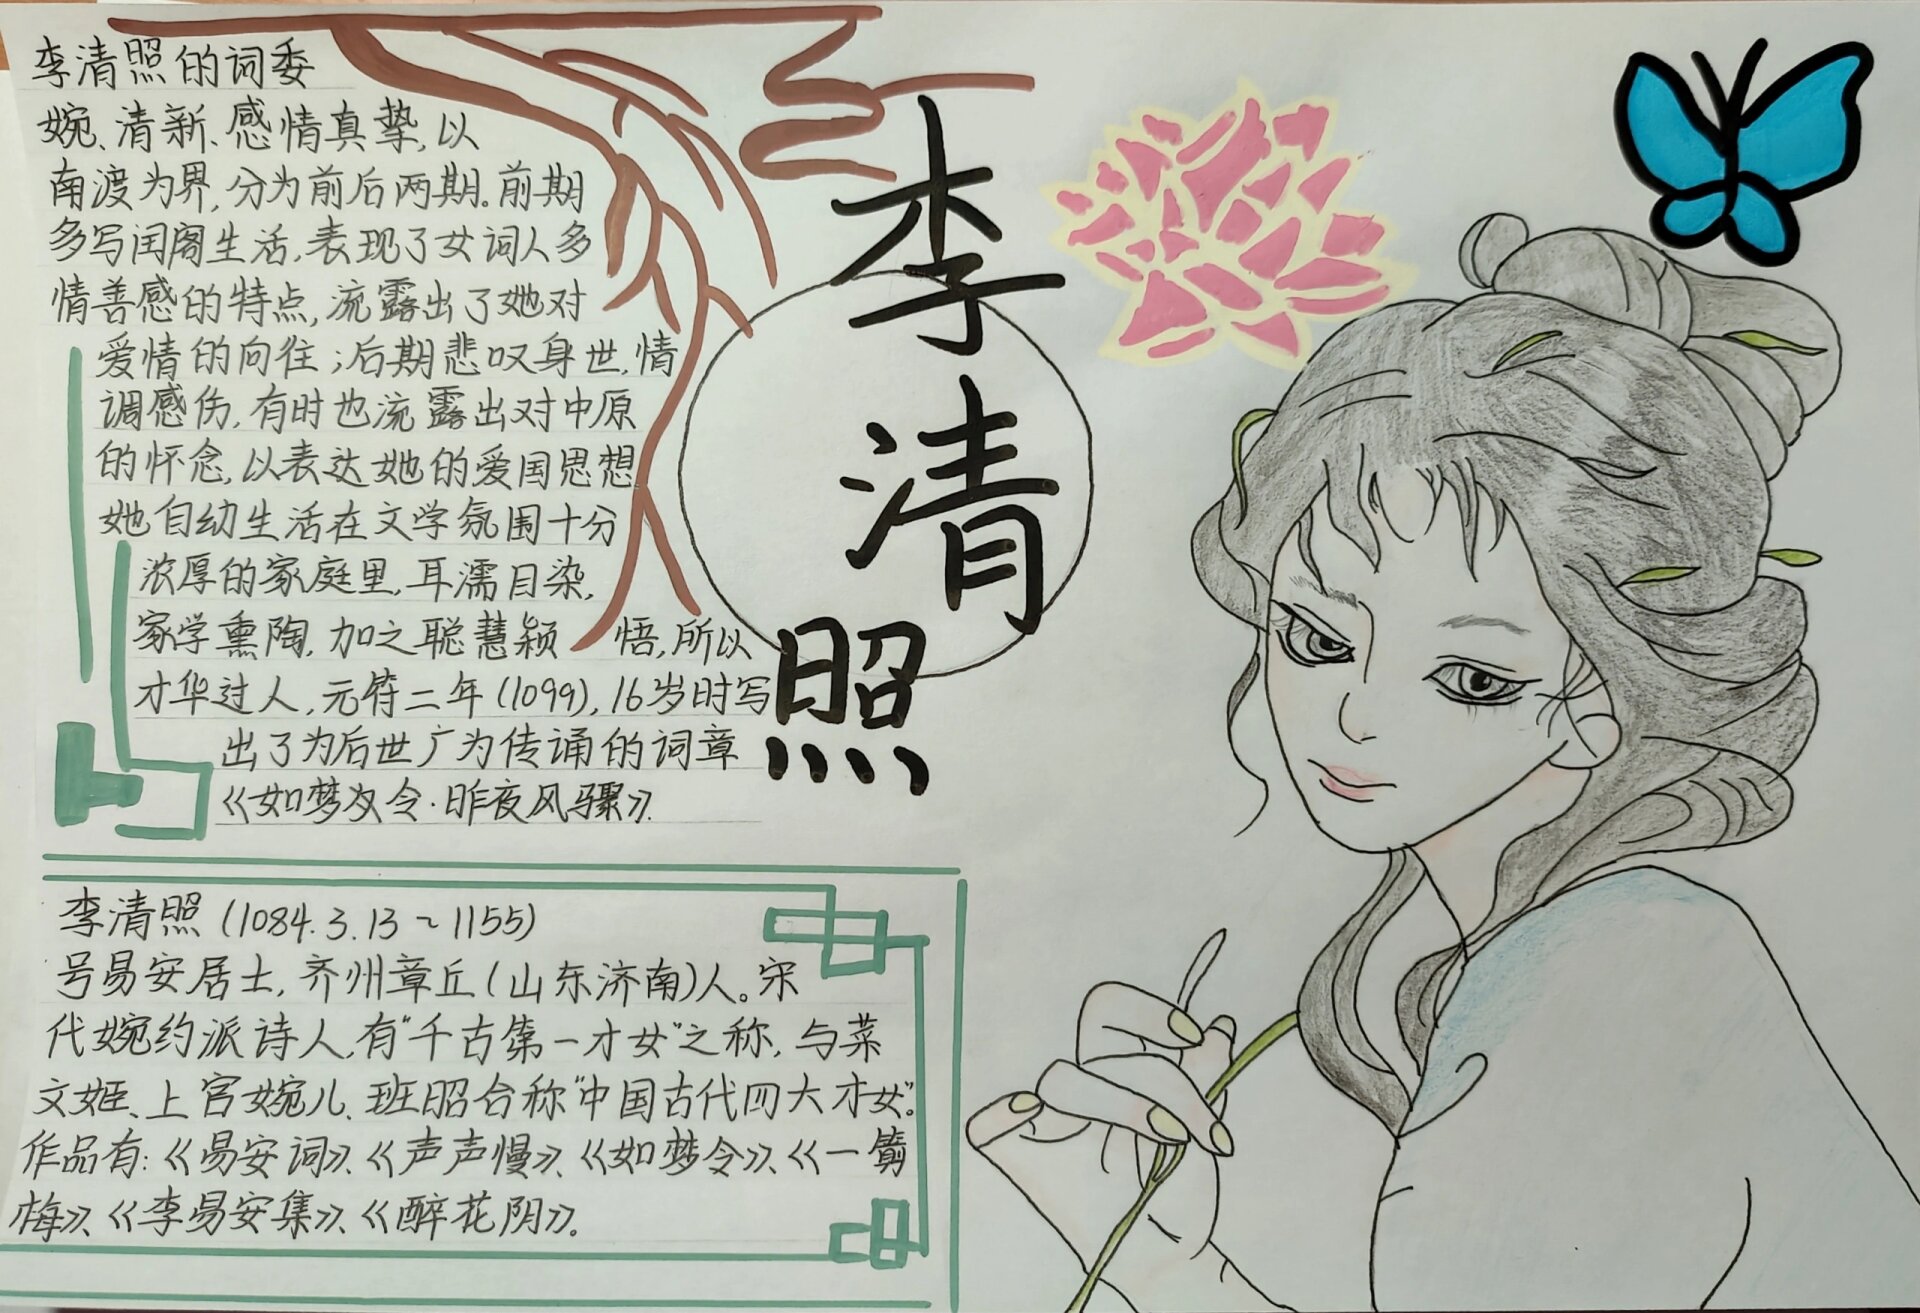 李清照的词委
婉、清新、感情真挚,以
南渡为界,分为前后两期。前期
多写闺阁生活,表现了女词人多
情善感的特点,流露出了她对
爱情的向往;后期悲叹身世,情
调感伤,有时也流露出对中原
的怀念,以表达她的爱国思想
她自幼生活在文学氛围十分
浓厚的家庭里,耳濡目染,
家学熏陶,加之聪慧颖 悟,所以
才华过人,元符二年(1099),16岁时写
出了为后世广为传诵的词章
《如梦令·昨夜风骤》.
李清照
李清照(1084.3.13~1155)
号易安居士,齐州章丘(山东济南)人。宋
代婉约派诗人,有"千古第一才女"之称,与菜
文姬、上官婉儿、班昭合称"中国古代四大才女"。
作品有:《易安词》、《声声慢》、《如梦令》、《一剪
梅》、《李易安集》、《醉花阴》。